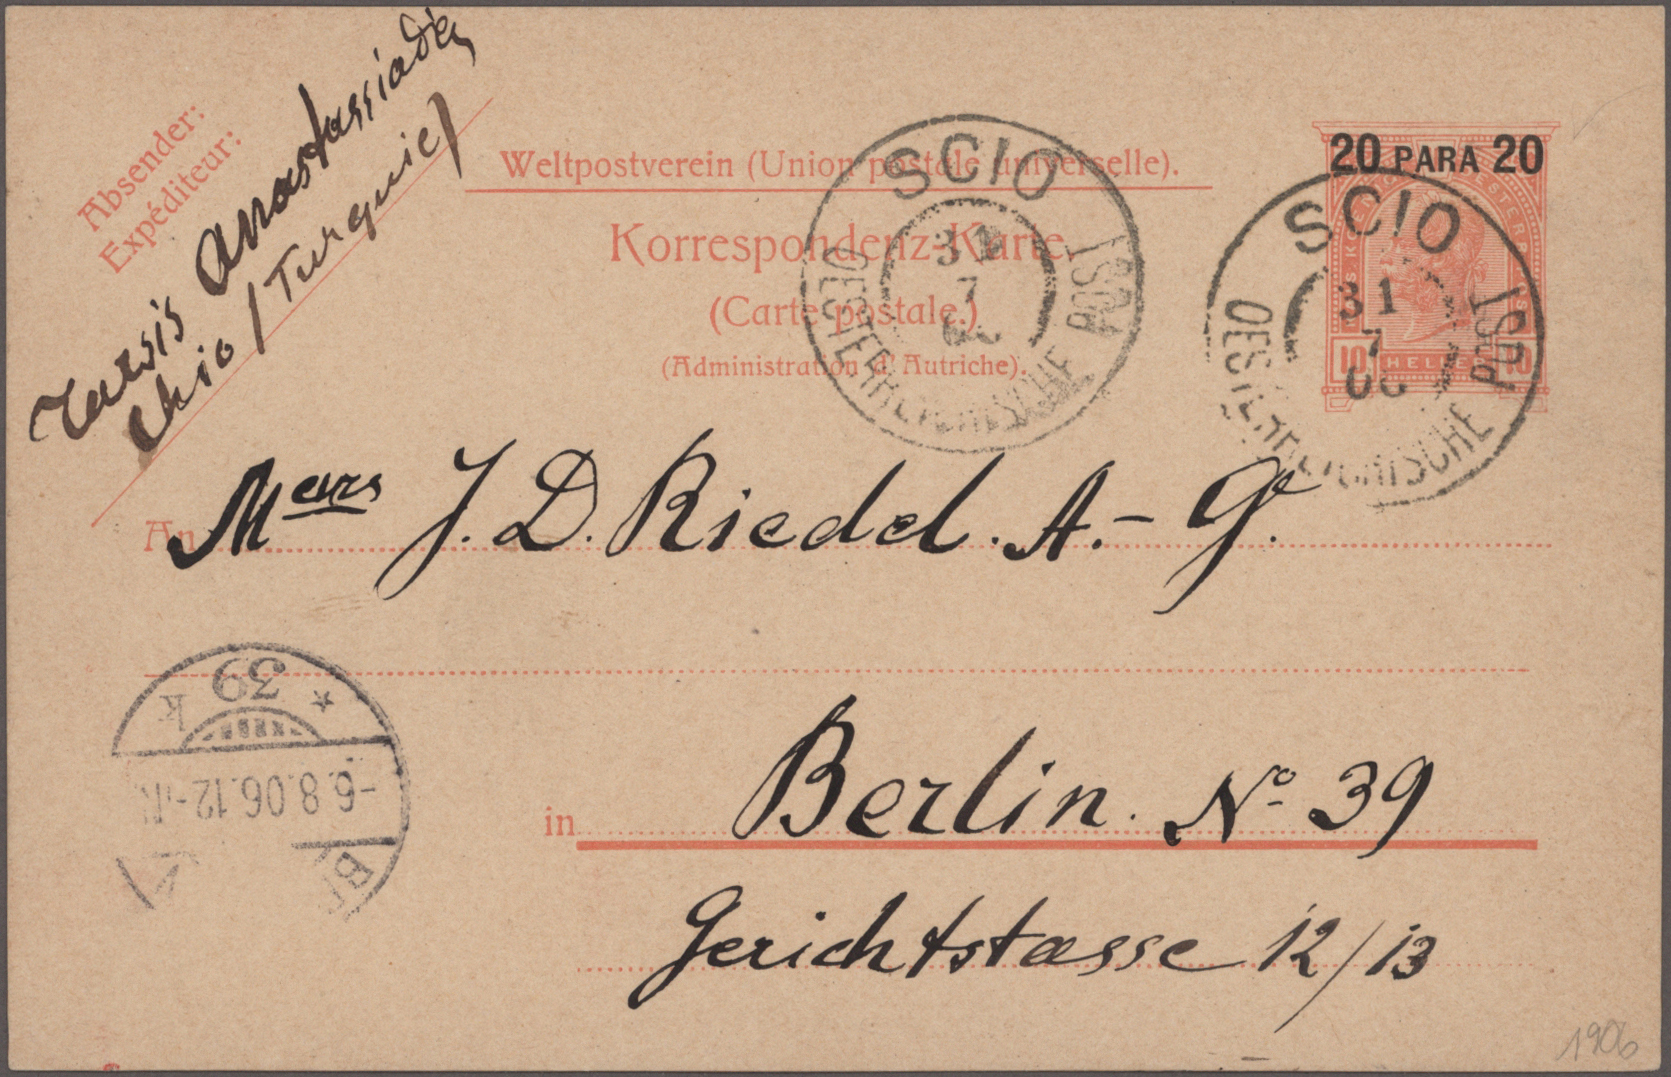 Absender:
Expéditeur:
Tarsis Anastassiadès
Chio / Turquie /
Weltpostverein (Union postale universelle).
Korrespondenz-Karte
(Carte postale.)
(Administration d' Autriche).
20 PARA 20
10 HELLER 10
SCIO
31
7
06
OESTERREICHISCHE POST
SCIO
31
7
06
OESTERREICHISCHE POST
An Mrs J. D. Riedel. A.-G.
39
k *
-6.8.06.12-
in Berlin. No 39
Gerichtstasse 12/13
1906